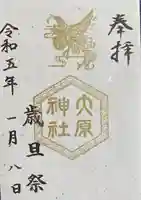 奉拝
大原
神社
歳旦祭
令和五年
一月八日